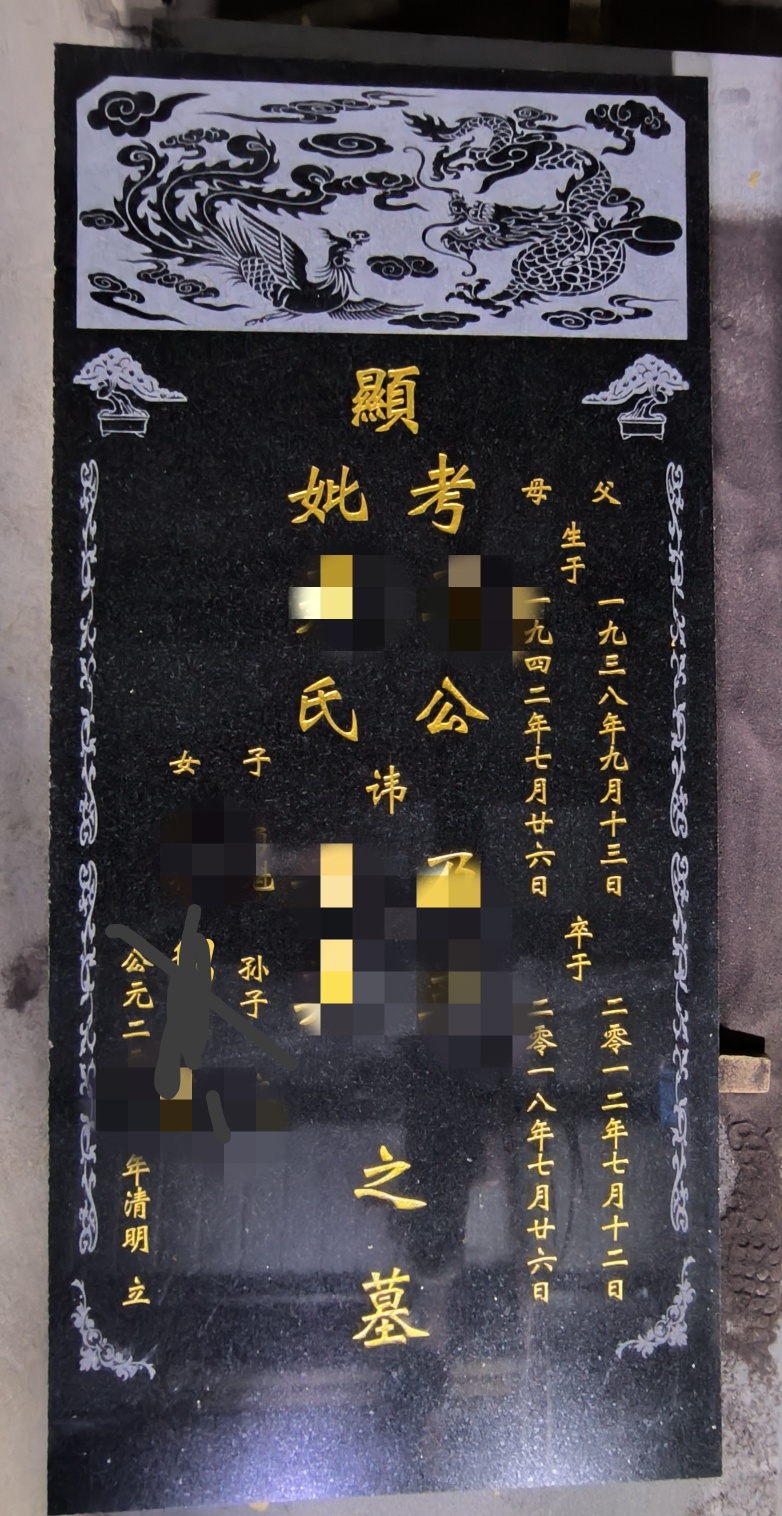 父
母
生于
一九三八年九月十三日
一九四二年七月廿六日
卒于
二零一二年七月十二日
二零一八年七月廿六日
顯
考
妣
公
氏
讳
之墓
子
女
孙子
公元二
年清明 立